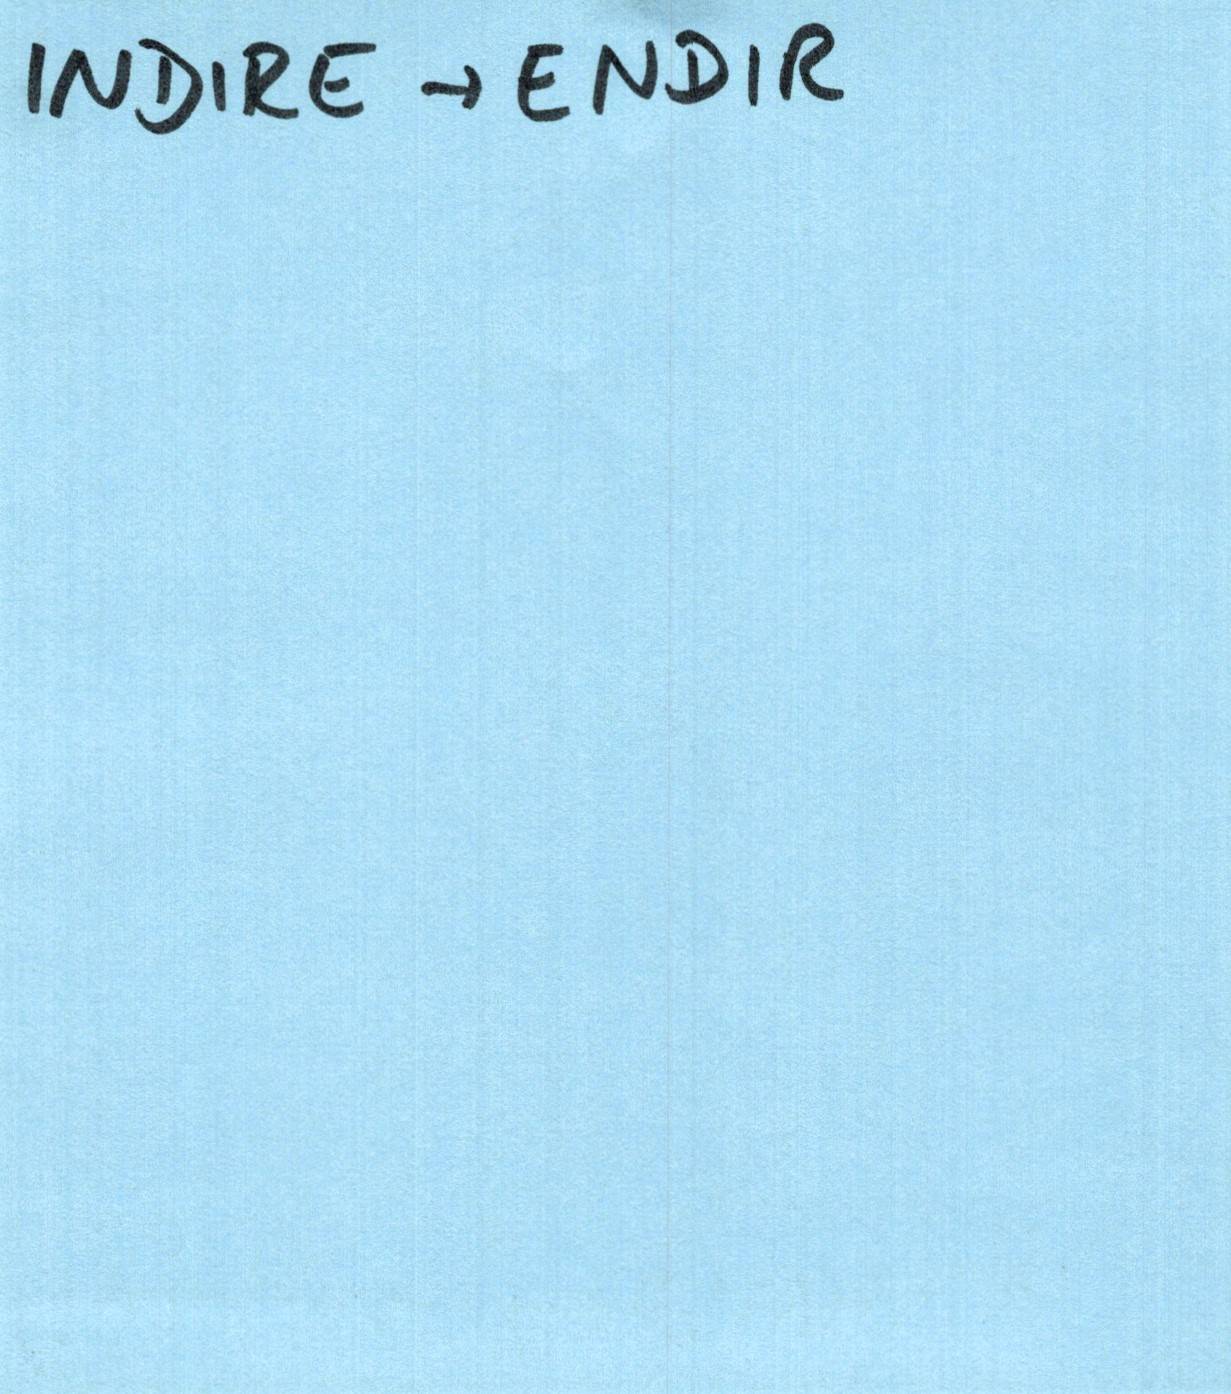 INDIRE → ENDIR